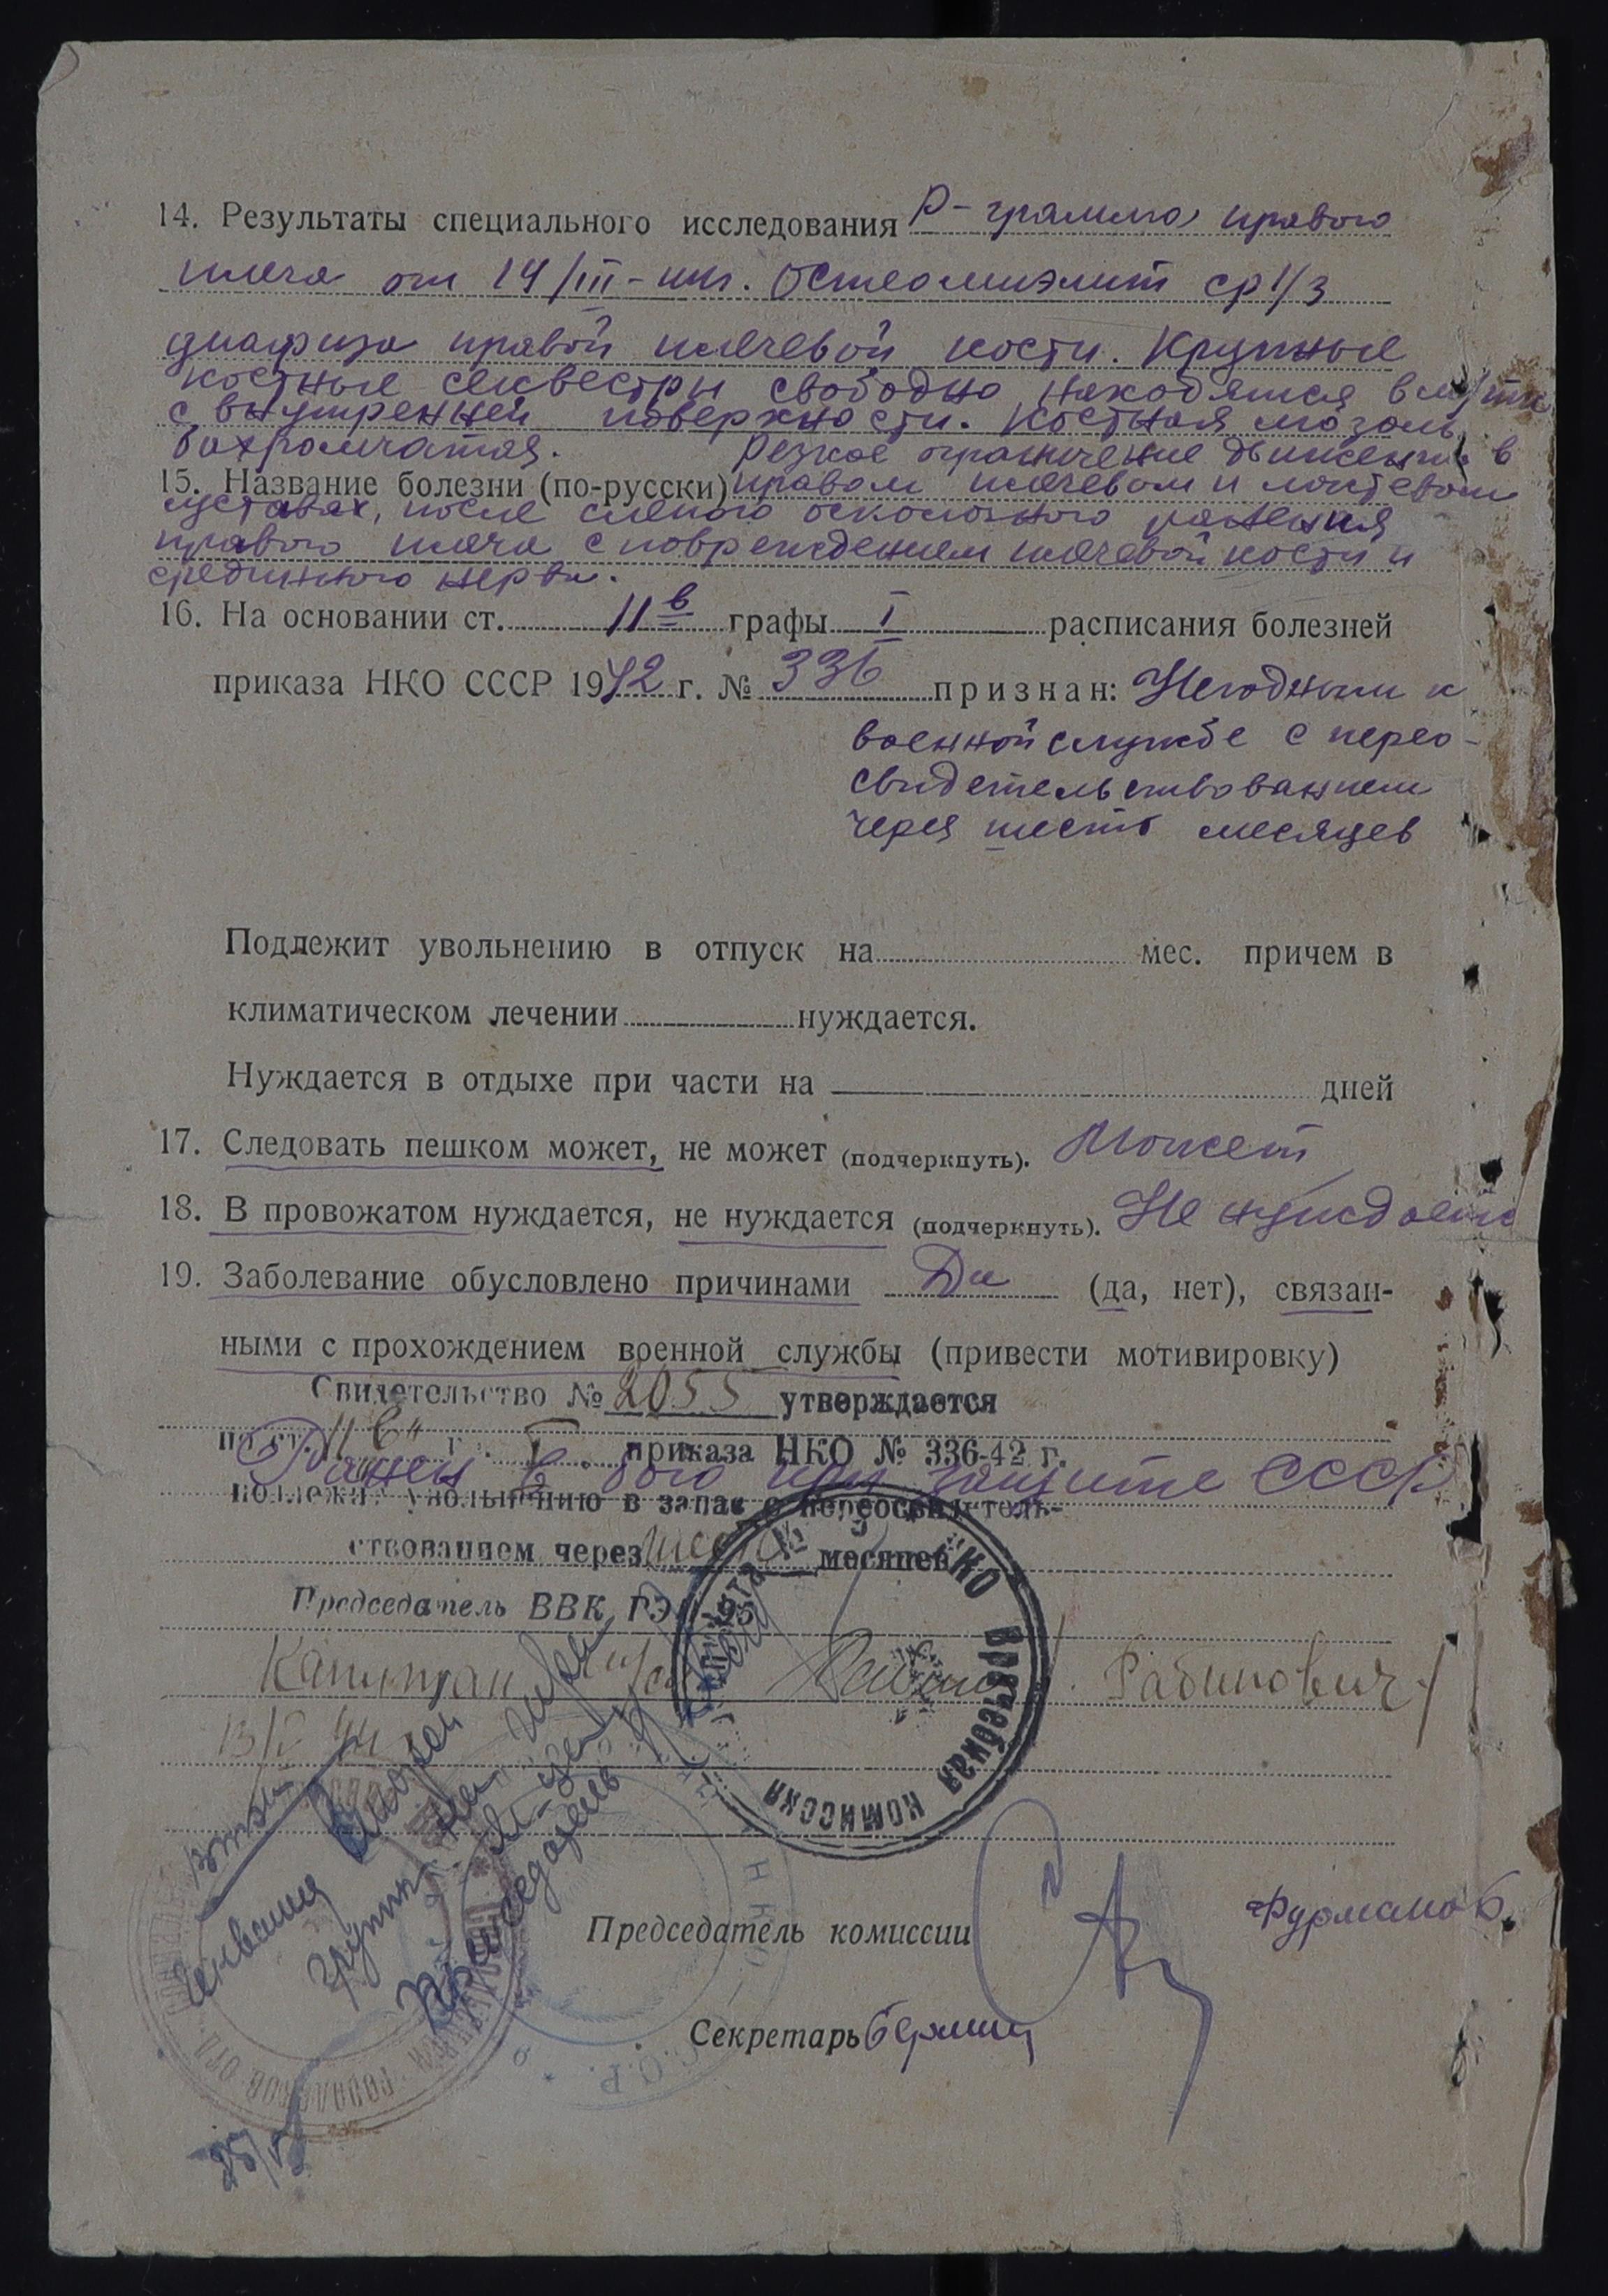 14. Результаты специального исследования Р-грамма правого
плеча от 14/III-44г. Остеомиэлит ср 1/3
диафиза правой плечевой кости. Крупные
костные секвестры свободно находятся в
с внутренней поверхности. Костная мозоль
бахромчатая.
Резкое ограничение движений в
15. Название болезни (по-русски) правом плечевом и локтевом
суставах, после слепого осколочного ранения
правого плеча с повреждением плечевой кости и
срединного нерва.
16. На основании ст. 11в графы I расписания болезней
приказа НКО СССР 1942 г. № 336 признан: Негодным к
военной службе с перео-
свидетельствованием
через шесть месяцев
Подлежит увольнению в отпуск на мес. причем в
климатическом лечении нуждается.
Нуждается в отдыхе при части на дней
17. Следовать пешком может, не может (подчеркнуть). Может
18. В провожатом нуждается, не нуждается (подчеркнуть). Не нуждается
19. Заболевание обусловлено причинами Да (да, нет), связан-
ными с прохождением военной службы (привести мотивировку)
Свидетельство № 2055 утверждается
по ст. 11 "в" гр. I приказа НКО № 336-42 г.
Ранен в бою при защите СССР
подлежит увольнению в запас с переосвидетель-
ствованием через шесть месяцев
Председатель ВВК РЭП-95
Капитан м/с Рабинович
13/V 44
ВТЭК
Инвалид второй
группы
Председатель
НКО
Врачебная комиссия
Председатель комиссии Фурманов.
Секретарь
25/V